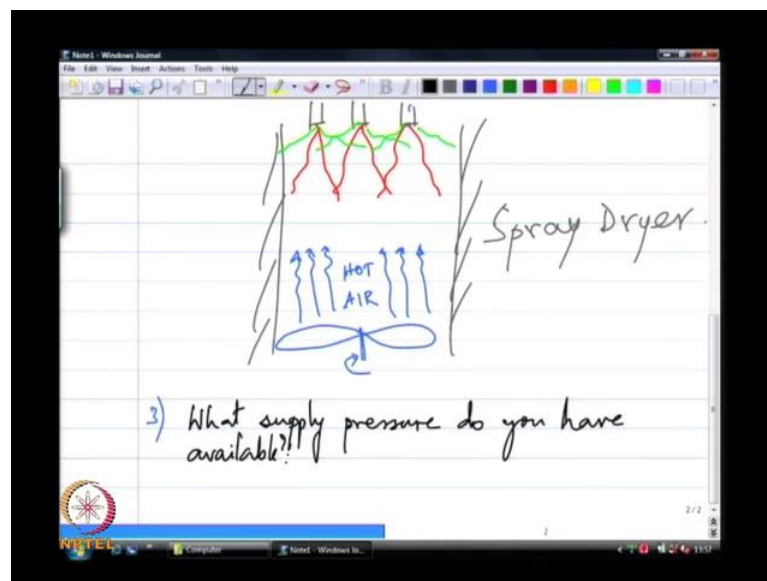 Note1 - Windows Journal
File Edit View Insert Actions Tools Help
B I
Spray Dryer.
HOT
AIR
3) What supply pressure do you have
available?!
2/2
2
NPTEL
Computer
Note1 - Windows Jo...
1957